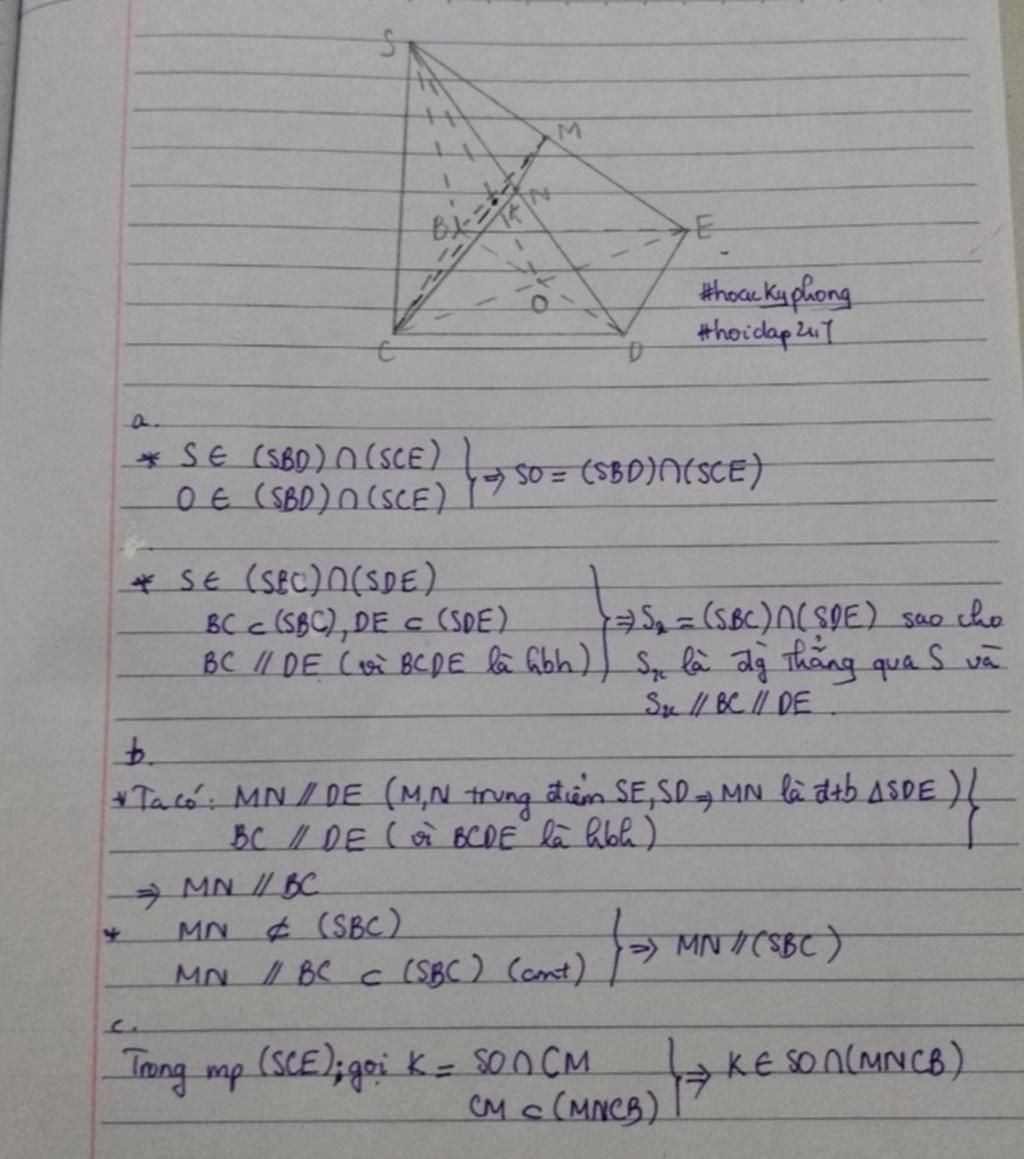 S
M
N
K
B
E
O
C
D
#hoauKyphong
#hoidap247
a.
* S ∈ (SBD) ∩ (SCE)
O ∈ (SBD) ∩ (SCE)
⇒ SO = (SBD) ∩ (SCE)
* S ∈ (SBC) ∩ (SDE)
BC ⊂ (SBC), DE ⊂ (SDE)
BC // DE (vì BCDE là hbh)
⇒ Sx = (SBC) ∩ (SDE) sao cho
Sx là đg thẳng qua S và
Sx // BC // DE.
b.
* Ta có: MN // DE (M,N trung điểm SE, SD ⇒ MN là đtb ΔSDE)
BC // DE (vì BCDE là hbh)
⇒ MN // BC
* MN ⊄ (SBC)
MN // BC ⊂ (SBC) (cmt)
⇒ MN // (SBC)
c.
Trong mp (SCE); gọi K = SO ∩ CM
CM ⊂ (MNCB)
⇒ K ∈ SO ∩ (MNCB)